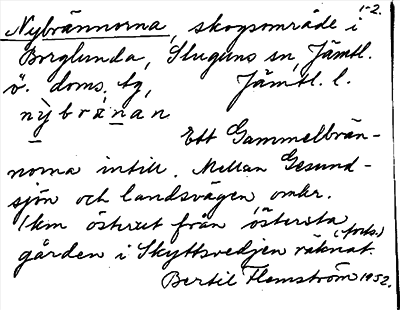 1-2.
Nybrännorna, skogsområde i
Borglunda, Stuguns sn, Jämtl.
ö. doms. tg, Jämtl. l.
nỳbrä́nan
Ett Gammelbrän-
norna intill. Mellan Gesund-
sjön och landsvägen, omkr.
1 km österut från östersta
gården i Skyttsvedjen räknat. (forts.)
Bertil Flemström 1952.